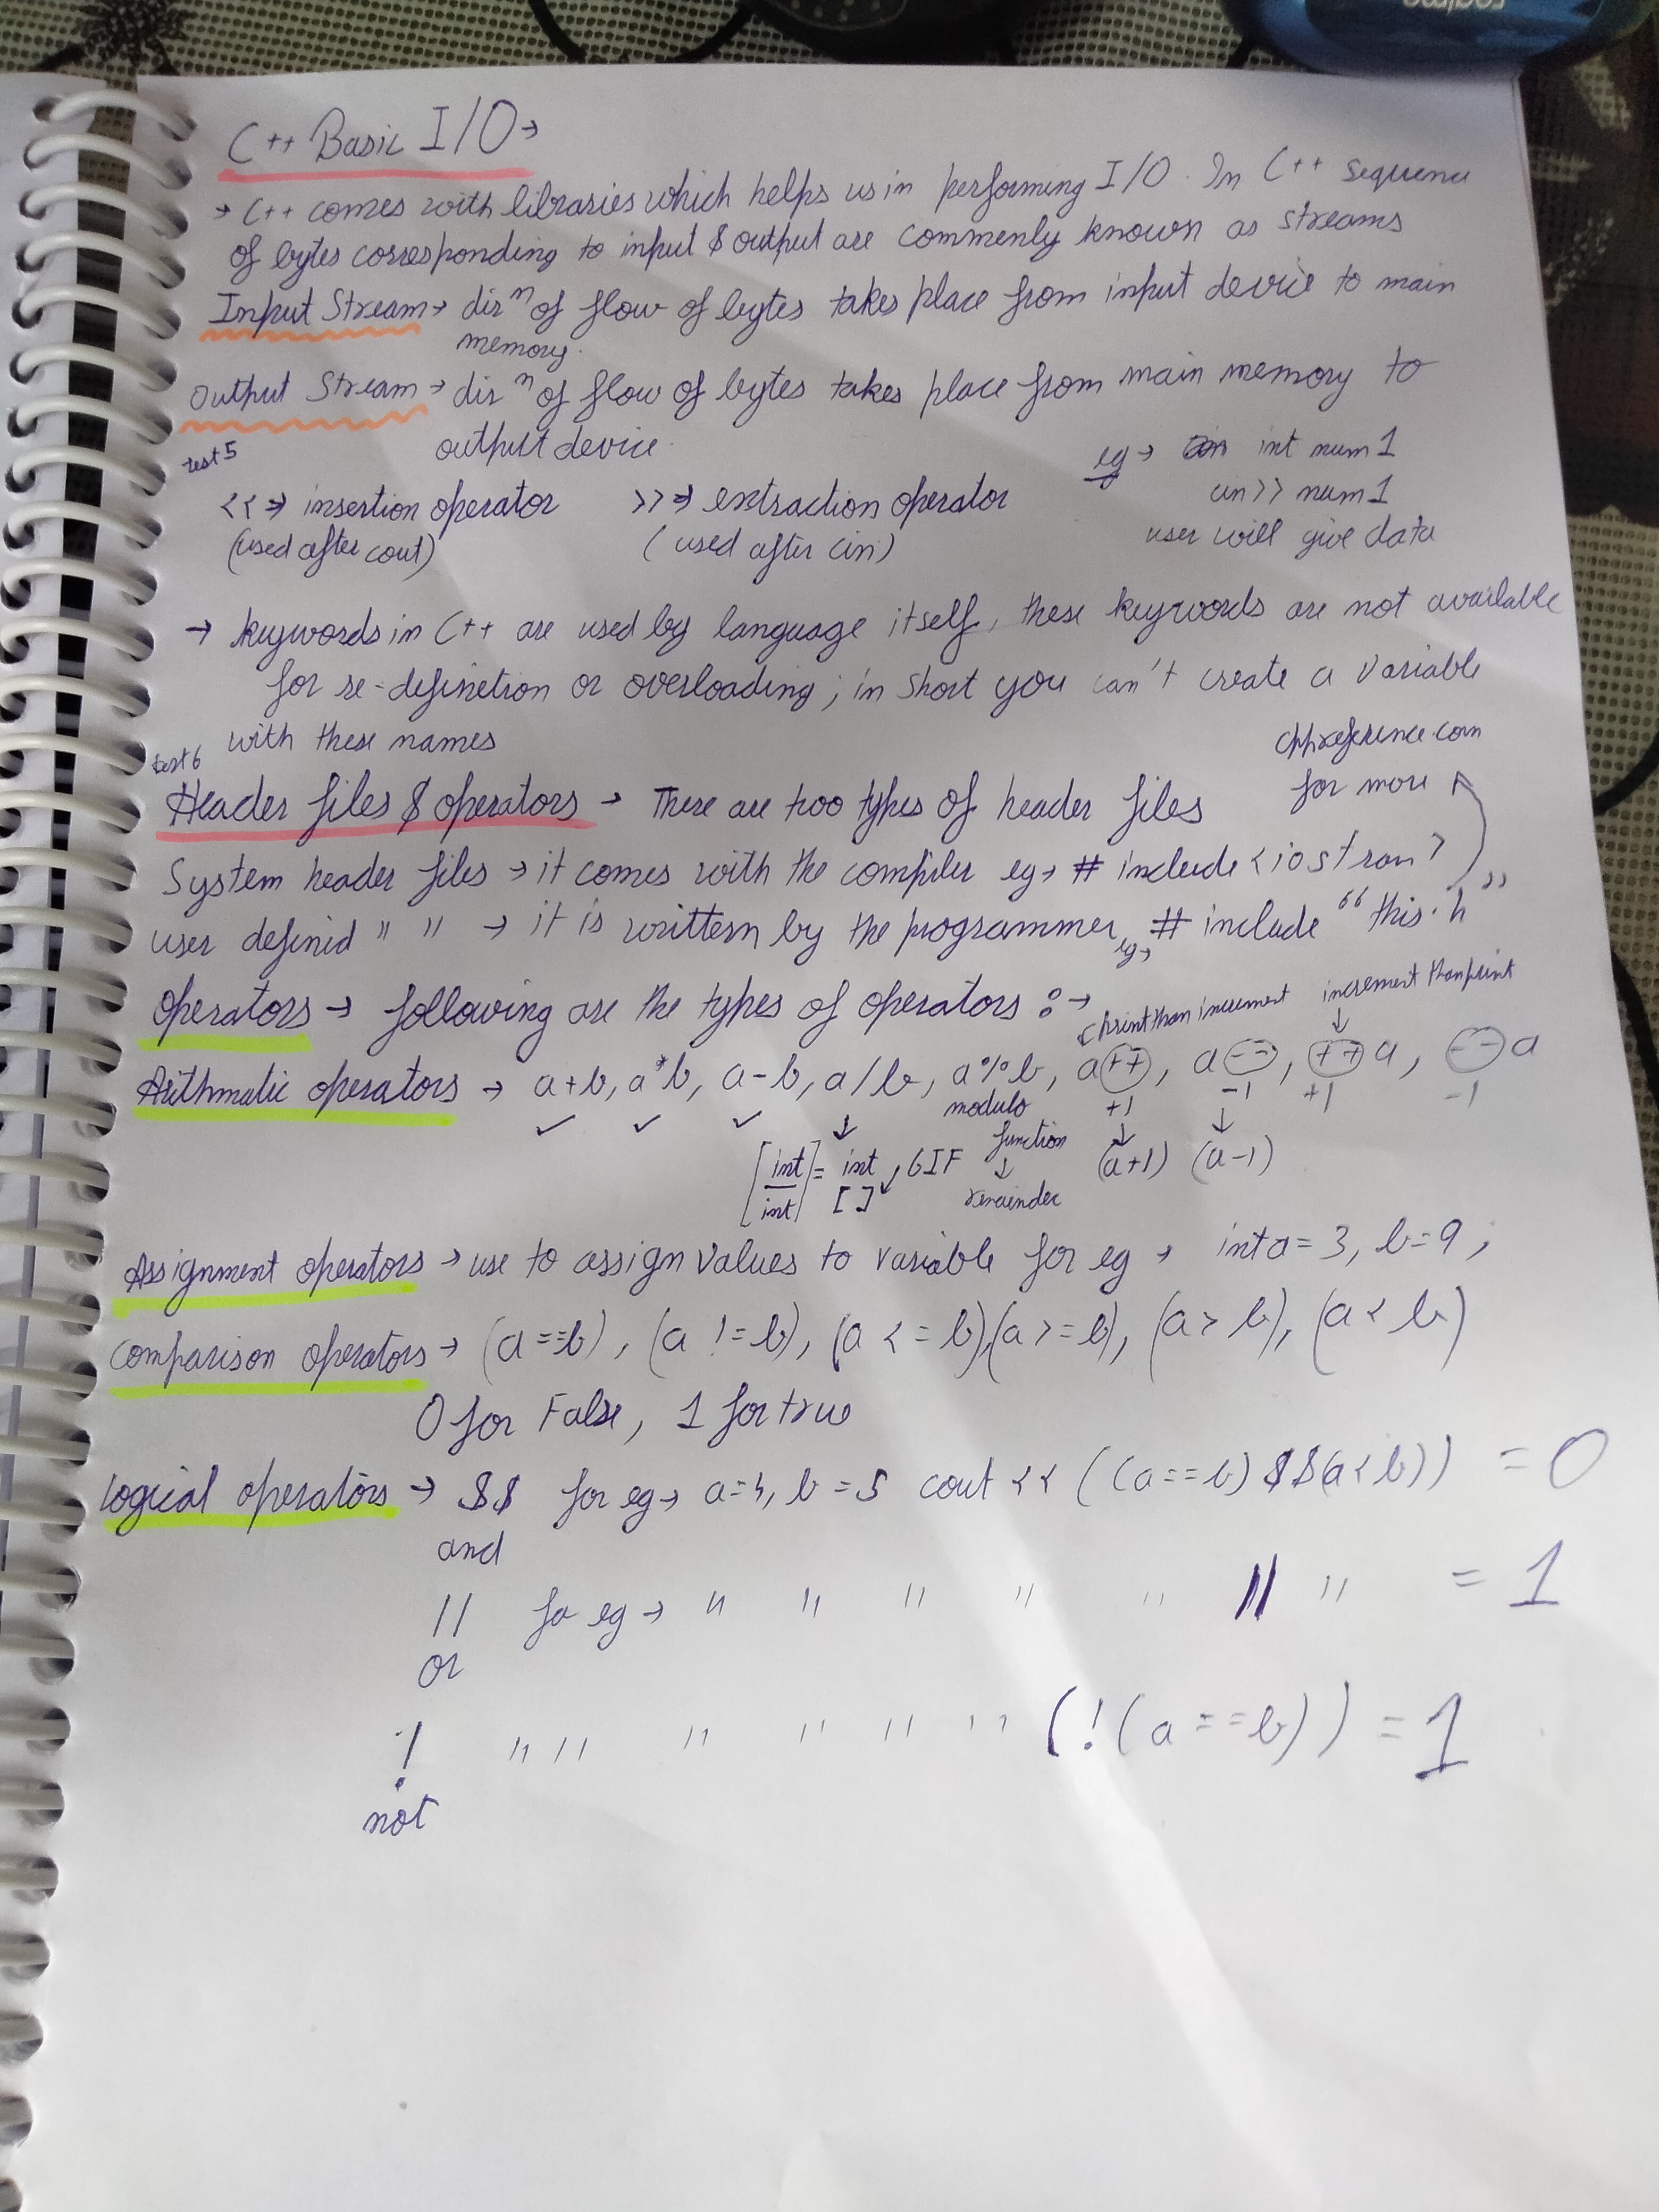 realme
C++ Basic I/O →
→ C++ comes with libraries which helps us in performing I/O. In C++ sequence
of bytes corresponding to input $ output are commenly known as streams
Input Stream → dirⁿ of flow of bytes takes place from input device to main
memory.
Output Stream → dirⁿ of flow of bytes takes place from main memory to
output device.
test5
eg → int num1
<< → insertion operator >> → extraction operator cin >> num1
(used after cout) (used after cin) user will give data
→ keywords in C++ are used by language itself, these keywords are not available
for re-definetion or overloading; in short you can't create a variable
with these names
cppreference.com
test6
Header files $ operators → There are two types of header files for more
System header files → it comes with the compiler eg → # include <iostram>
user defined " " → it is writtern by the programmer, eg → # include "this.h"
operators → following are the types of operators :→
print than increment increment than print
Arithmatic operators → a+b, a*b, a-b, a/b, a%b, a++, a--, ++a, --a
✓ ✓ ✓ ↓ modulo +1 -1 +1 -1
[int/int] = int GIF function ↓ ↓
[ ] ↓ remainder (a+1) (a-1)
Assignment operators → use to assign values to variable for eg → int a=3, b=9;
comparison operators → (a==b), (a!=b), (a<=b),(a>=b), (a>b), (a<b)
0 for False, 1 for true
logical operators → $$ for eg → a=4, b=5 cout << ((a==b) $$(a<b)) = 0
and
|| for eg → " " " " " || " = 1
or
! " " " " " " (!(a==b)) = 1
not